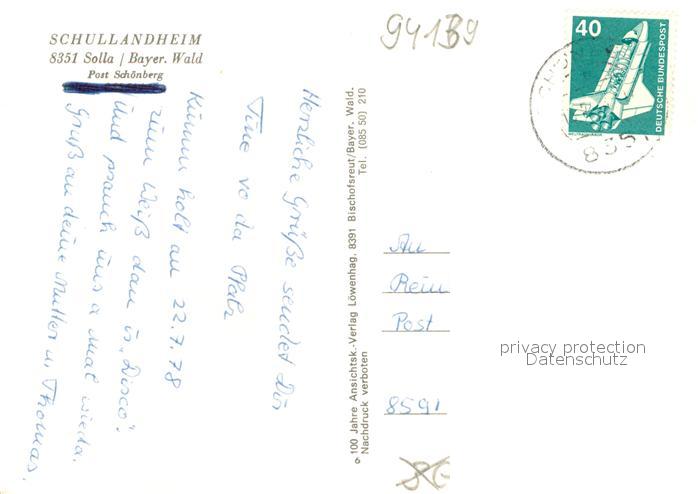 SCHULLANDHEIM
8351 Solla / Bayer. Wald
Post Schönberg
Herzliche Grüße sendet Dir
Tine vo da Pfalz
Kimm holt am 22.7.78
zum Weiß dam is „Disco".
Und prauch uns a mal wieda.
Gruß an deine Mutter u. Thomas.
100 Jahre Ansichtsk.-Verlag Löwenhag, 8391 Bischofsreut/Bayer. Wald.
Nachdruck verboten Tel. (085 50) 210
94139
40
DEUTSCHE BUNDESPOST
835
An
Rein
Post
8591
privacy protection
Datenschutz